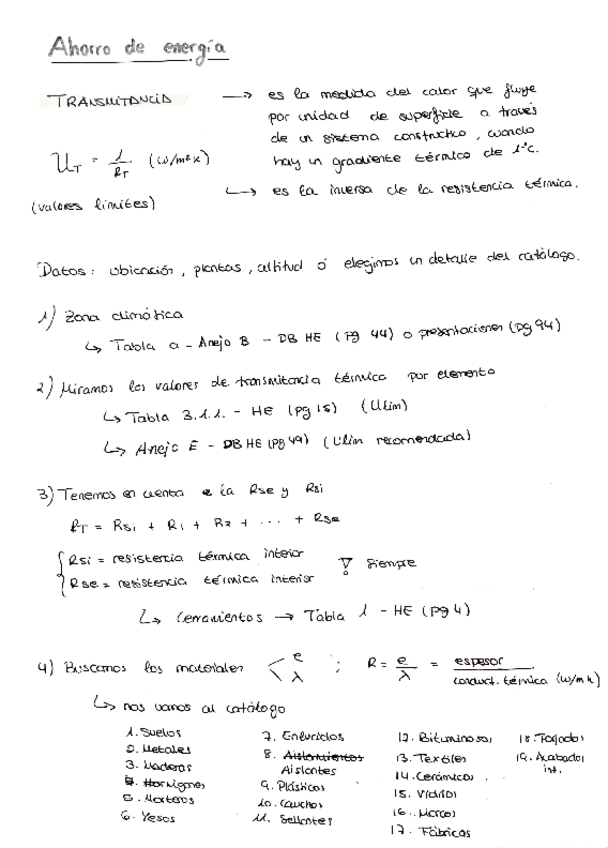 Ahorro de energía
TRANSMITANCIA → es la medida del calor que fluye
por unidad de superficie a través
de un sistema constructivo, cuando
hay un gradiente térmico de 1°C.
U_T = 1/R_T (W/m²K)
↳ es la inversa de la resistencia térmica.
(valores límites)
Datos: ubicación, plantas, altitud ó elegimos un detalle del catálogo.
1) Zona climática
↳ Tabla a - Anejo B - DB HE (pg 44) o presentaciones (pg 94)
2) Miramos los valores de transmitancia térmica por elemento
↳ Tabla 3.1.1. - HE (pg 15) (Ulim)
↳ Anejo E - DB HE (pg 49) (Ulim recomendada)
3) Tenemos en cuenta a la Rse y Rsi
RT = Rsi + R1 + R2 + ... + Rse
Rsi = resistencia térmica interior
Rse = resistencia térmica interior
Siempre
↳ Cerramientos → Tabla 1 - HE (pg 4)
4) Buscamos los materiales < e λ ; R = e/λ = espesor / conduct. térmica (W/mK)
↳ nos vamos al catálogo
1. Suelos
2. Metales
3. Maderas
4. Hormigones
5. Morteros
6. Yesos
7. Enlucidos
8. Aislamientos
Aislantes
9. Plásticos
10. Cauchos
11. Sellantes
12. Bituminosos
13. Textiles
14. Cerámicos
15. Vidrios
16. Marcos
17. Fábricas
18. Forjados
19. Acabados
int.